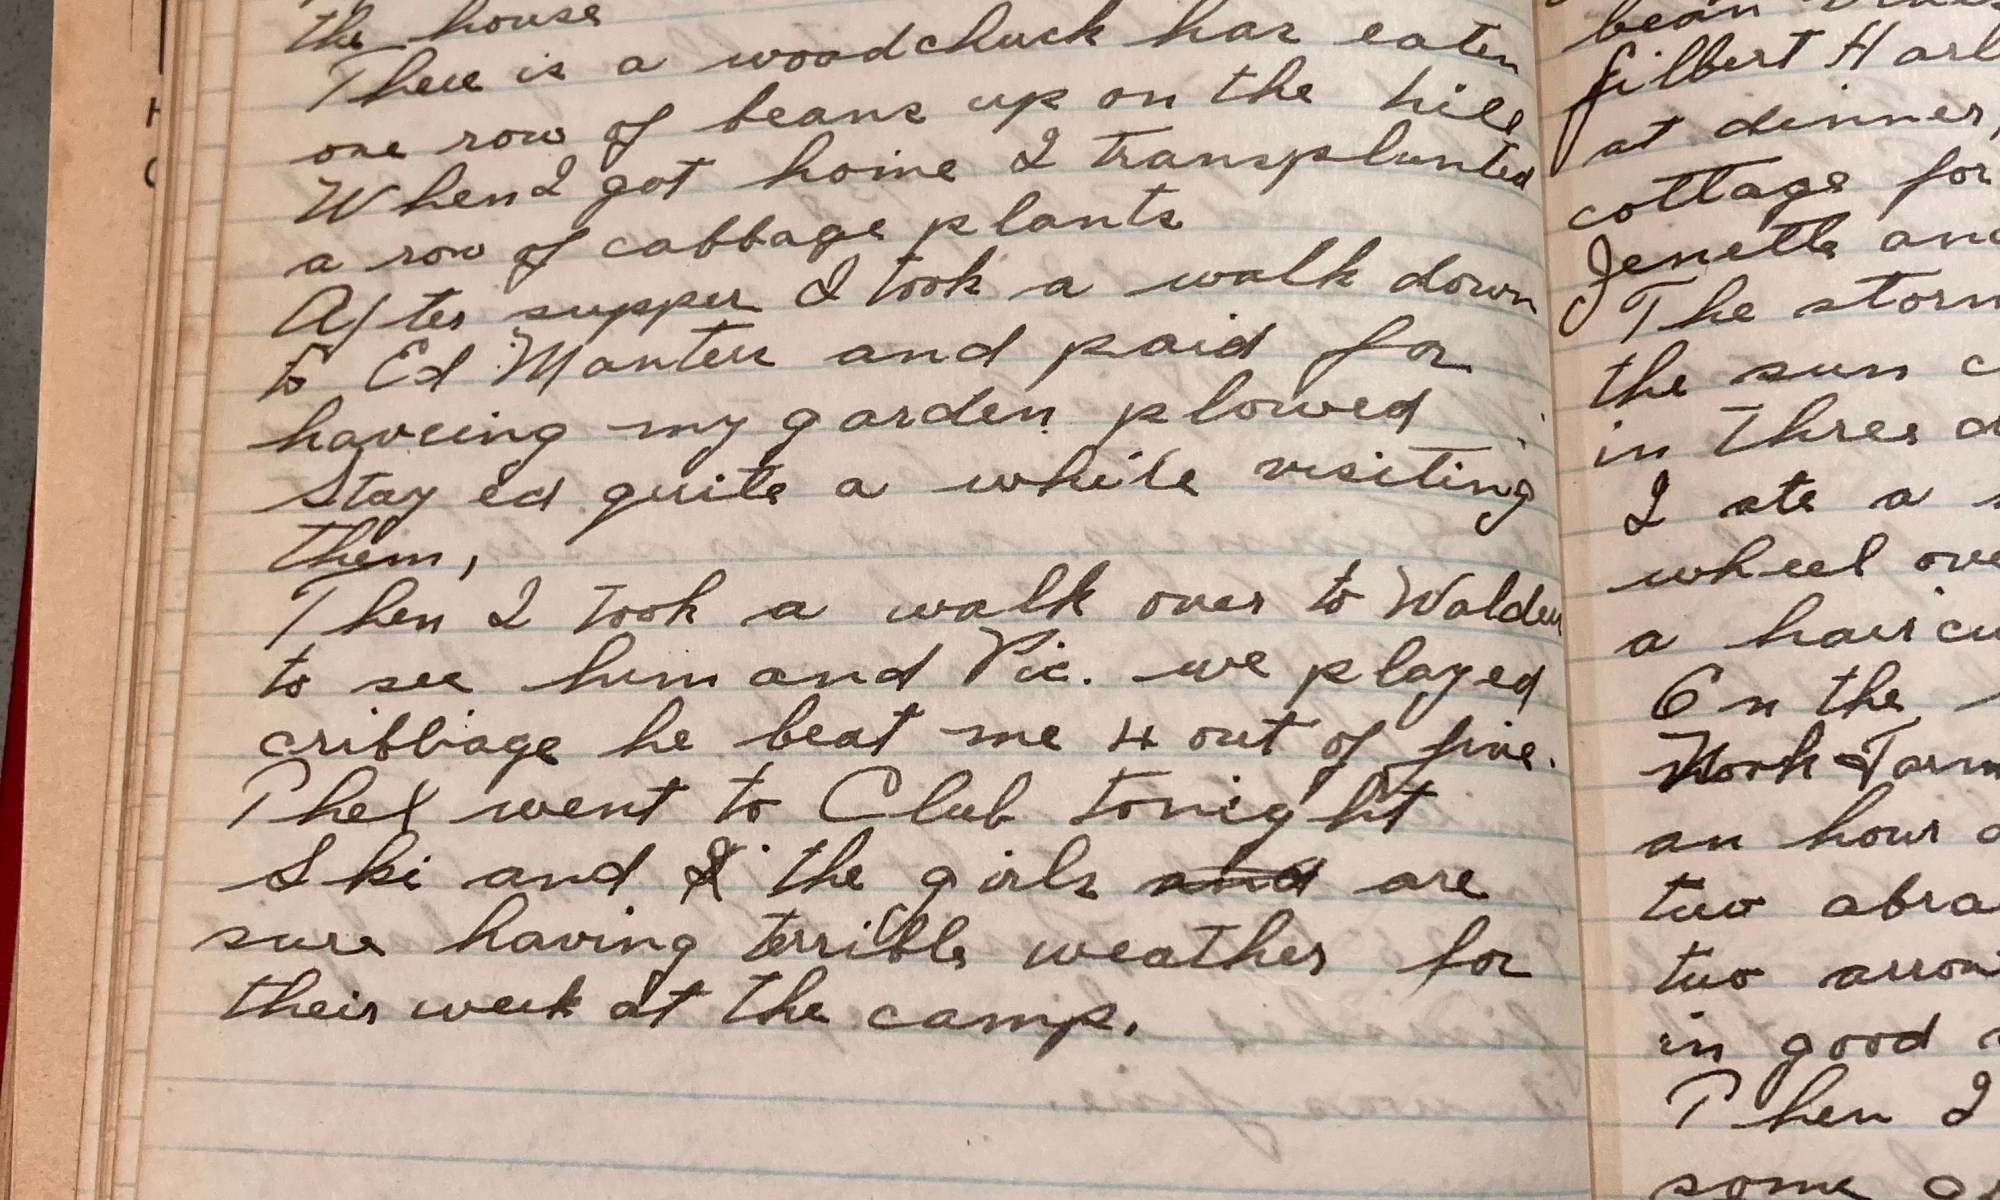 the house
There is a woodchuck har eaten
one row of beans up on the hill
When I got home I transplanted
a row of cabbage plants
After supper I took a walk down
to Ed Manter and paid for
haveing my garden plowed
Stayed quite a while visiting
them,
Then I took a walk over to Walden
to see him and Vic. we played
cribbiage he beat me 4 out of five.
Phel went to Club tonight
Ski and the girls and are
sure having terrible weather for
their week at the camp.
bean
Gilbert Harl
at dinner,
cottage for
Jenette and
The storm
the sun c
in three d
I ate a
wheel ove
a haircu
On the
North Farm
an hour
two abra
two arrow
in good
Then I
some